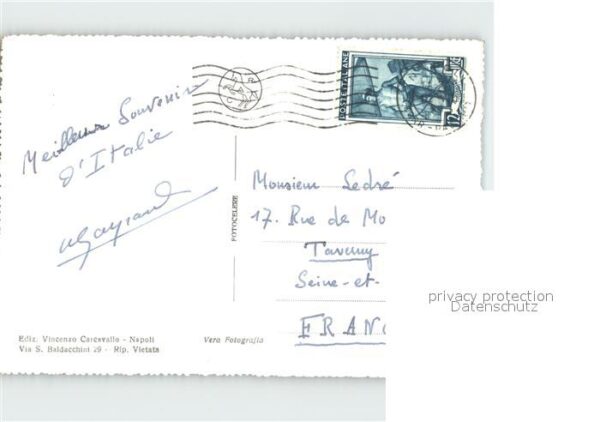 POSTE ITALIANE
12
Meilleurs Souvenirs
d'Italie
Monsieur Ledré
17. Rue de Mo
Taverny
Seine-et-
FRANC
FOTOCELERE
privacy protection
Datenschutz
Ediz. Vincenzo Carcavallo - Napoli
Via S. Baldacchini 29 - Rip. Vietata
Vera Fotografia